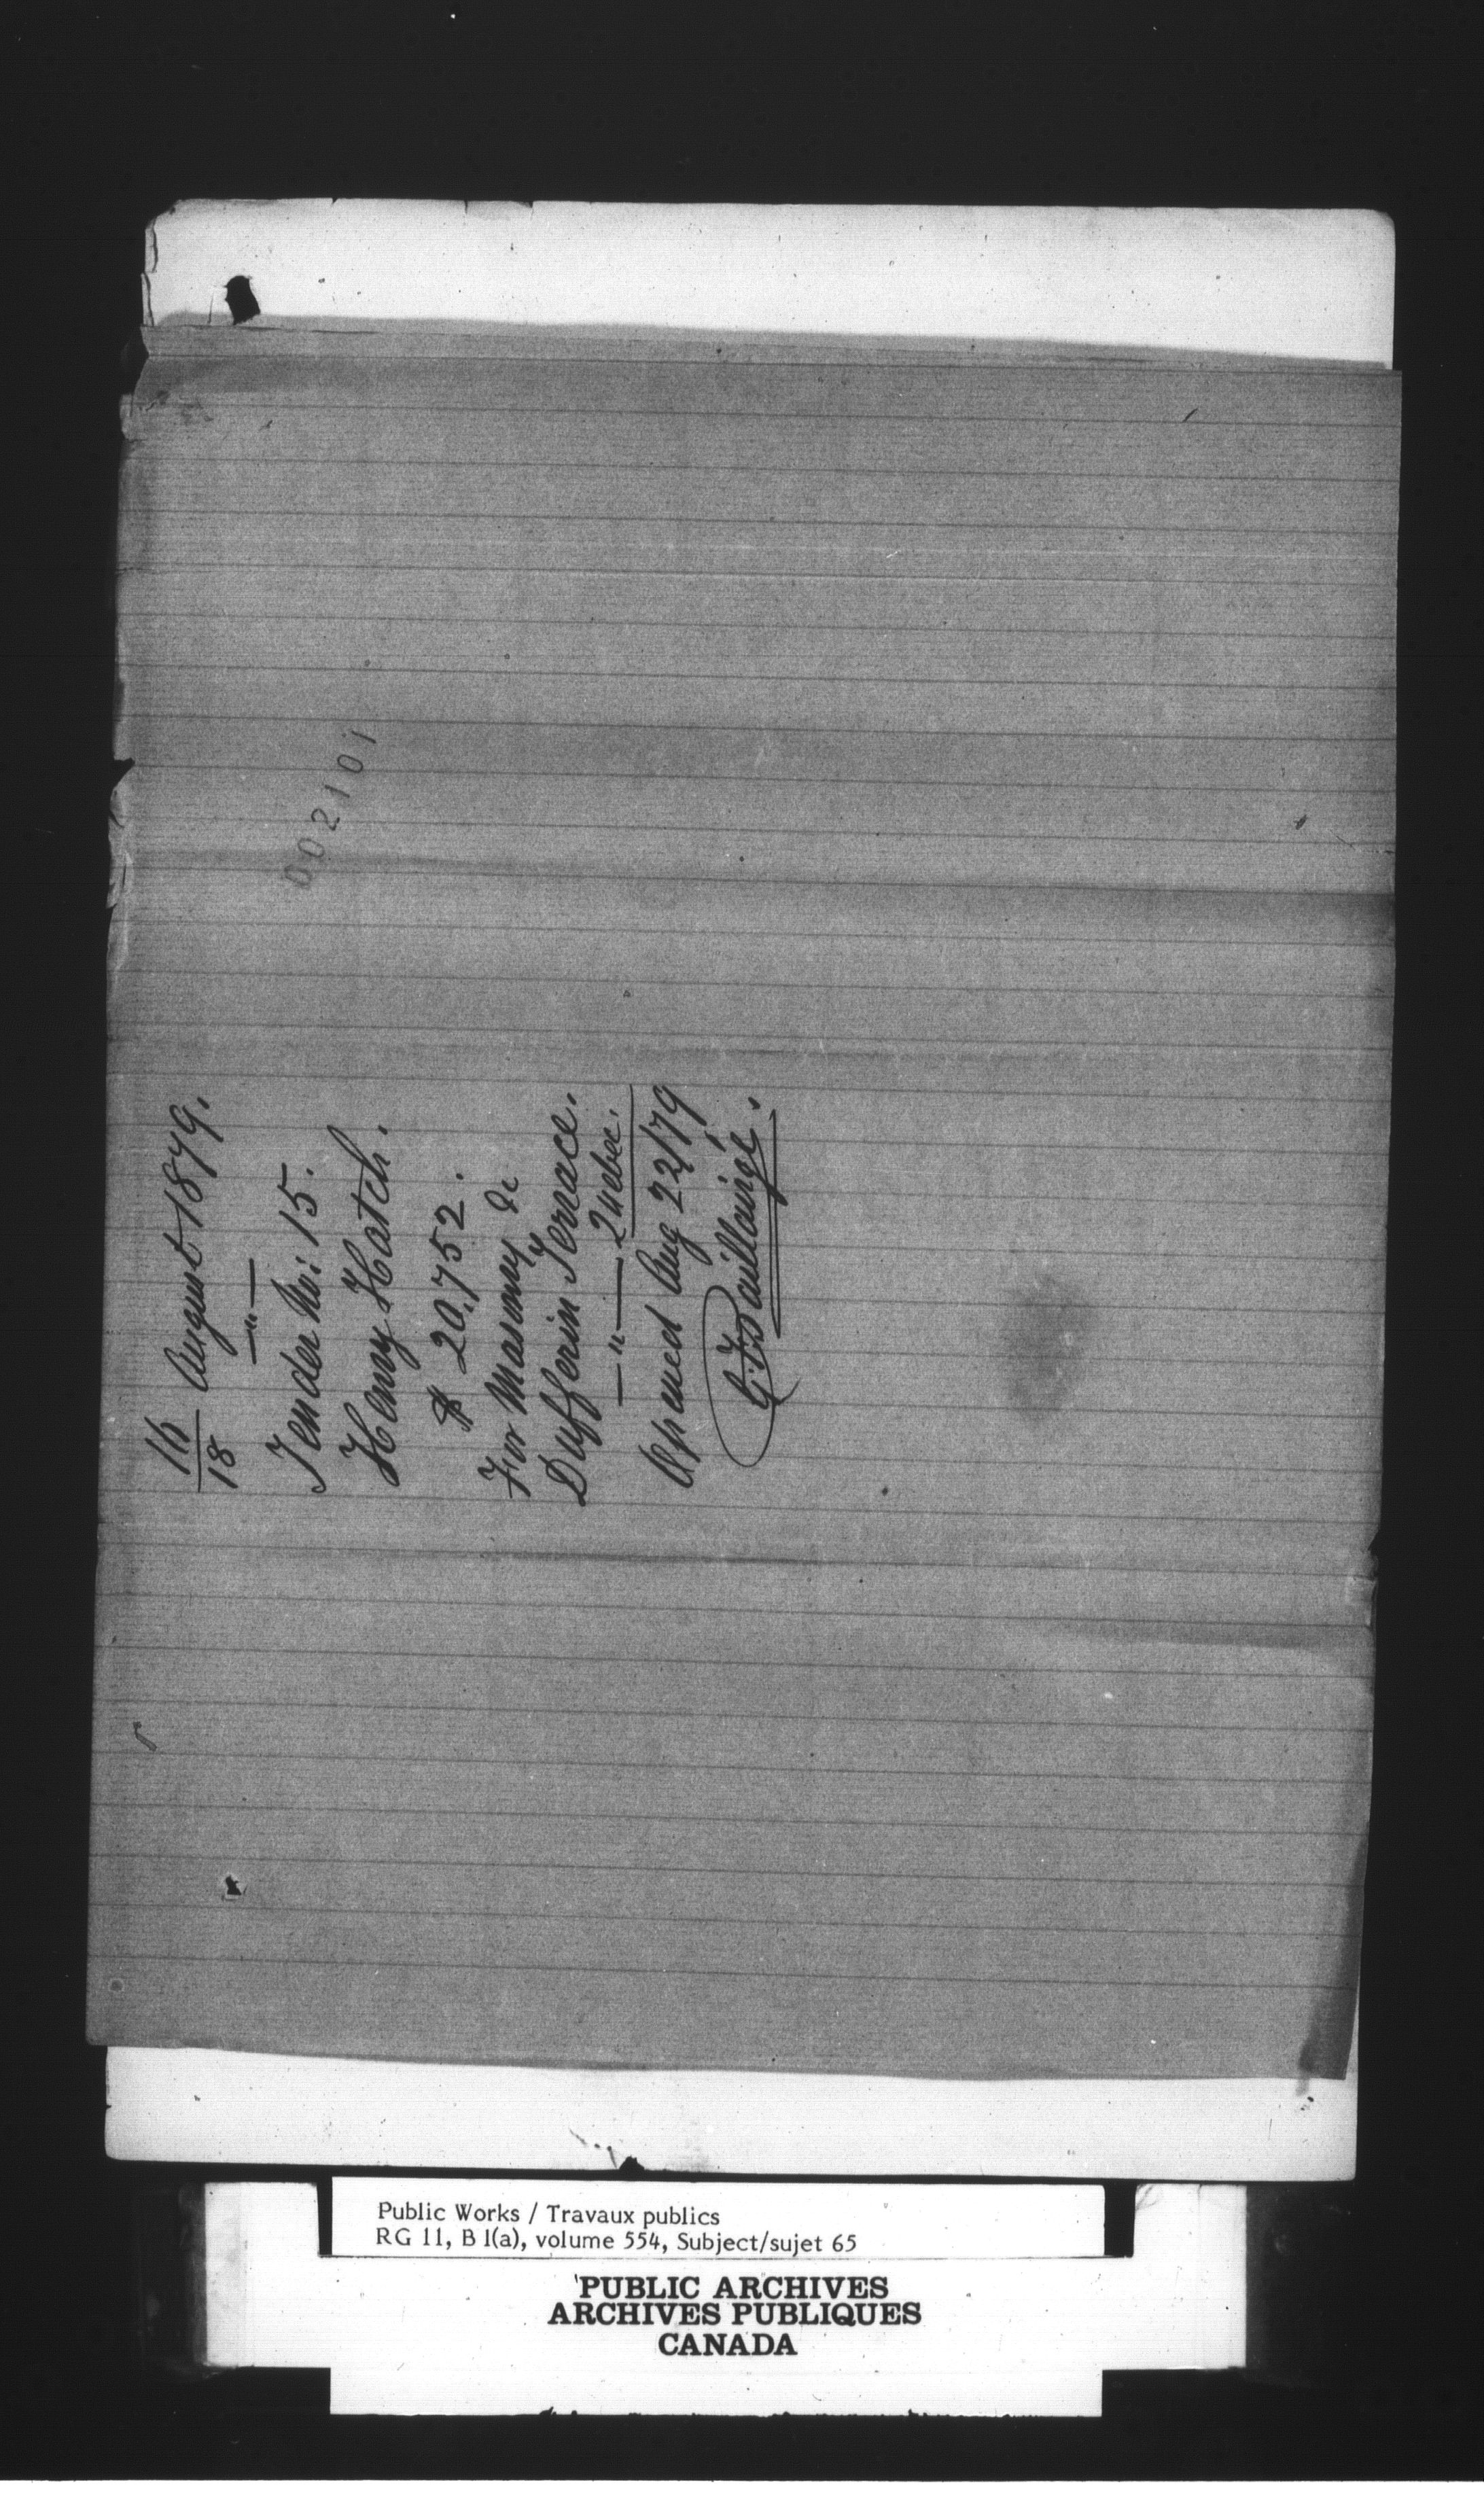 002101
16/18 August 1879.
—"—
Tender No: 15.
Henry Hatch.
$ 20,752.
For Masonry &c
Dufferin Terrace.
—"— Quebec.
Opened Aug 22/79
G.F. Baillairgé.
Public Works / Travaux publics
RG 11, B 1(a), volume 554, Subject/sujet 65
PUBLIC ARCHIVES
ARCHIVES PUBLIQUES
CANADA